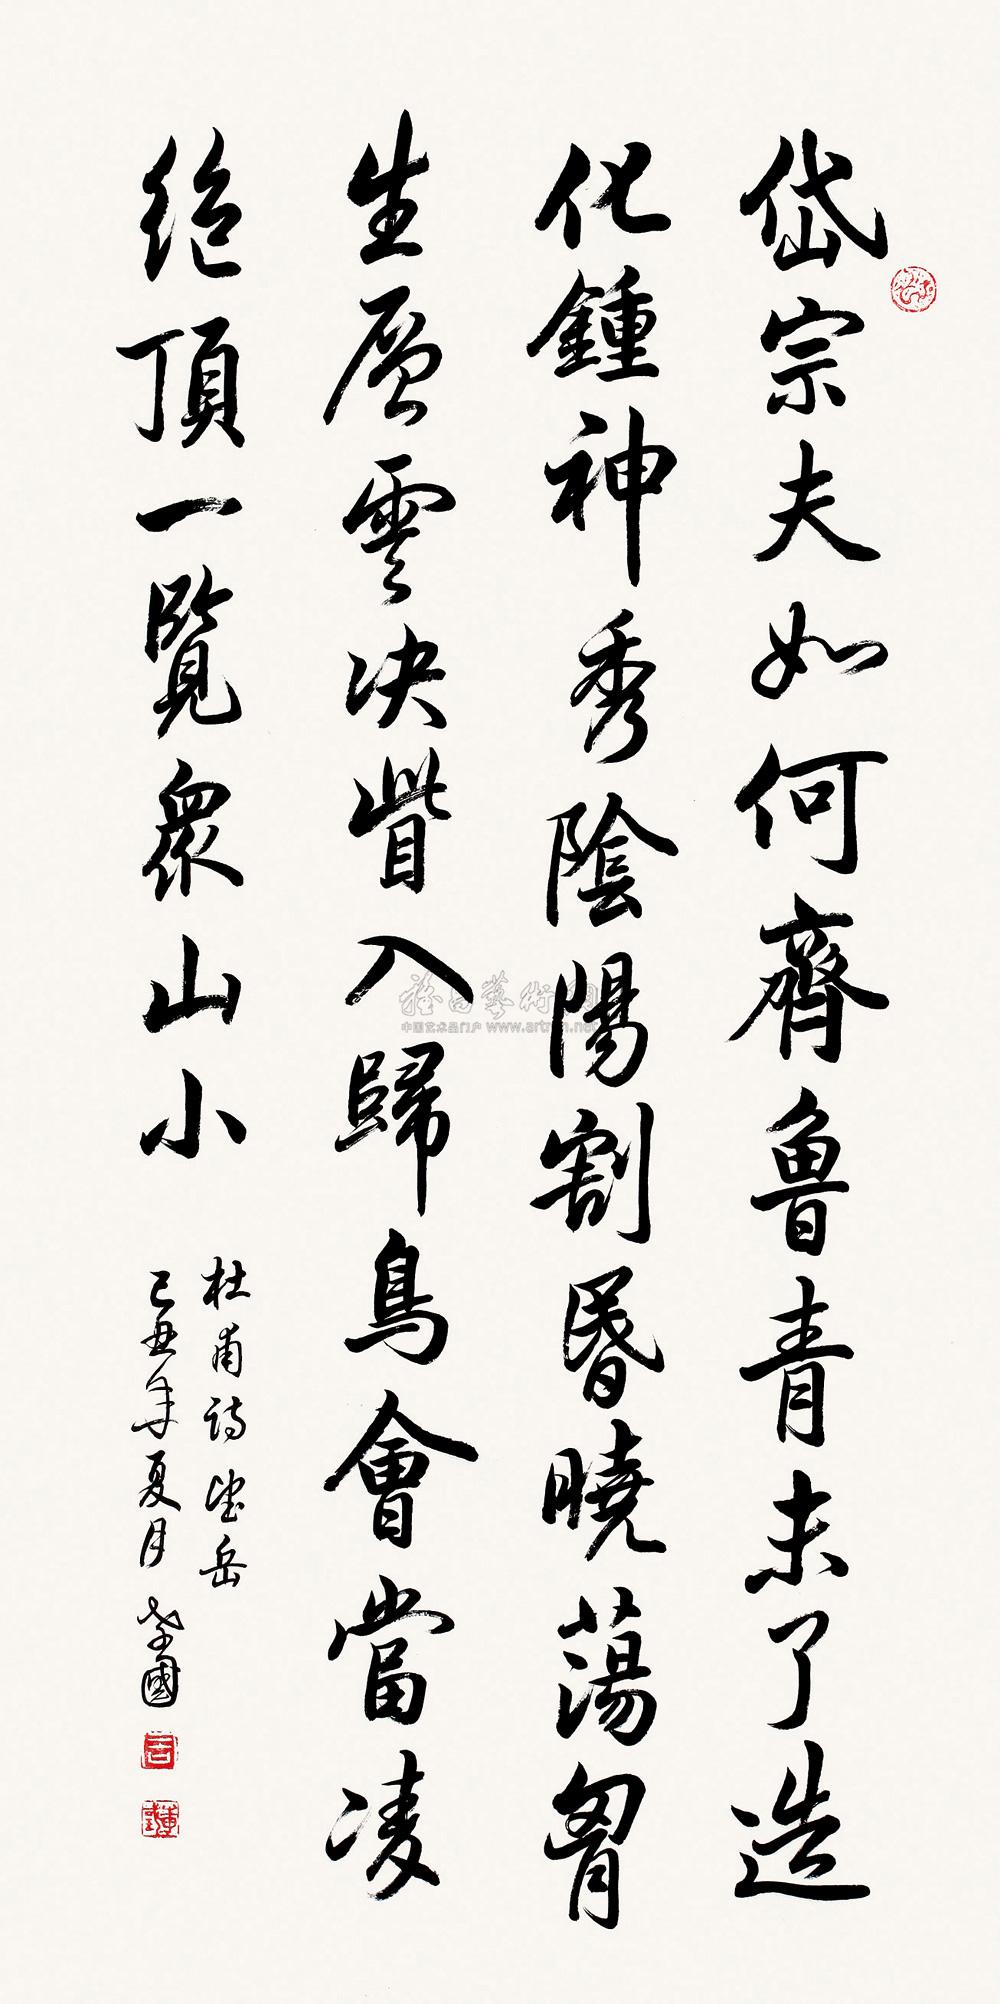 岱宗夫如何齊魯青未了造
化鍾神秀陰陽割昬曉蕩胷
生層雲决眥入歸鳥會當凌
絶頂一覽衆山小
杜甫詩望岳
己丑年夏月 國
中国艺术品门户 www.artron.net